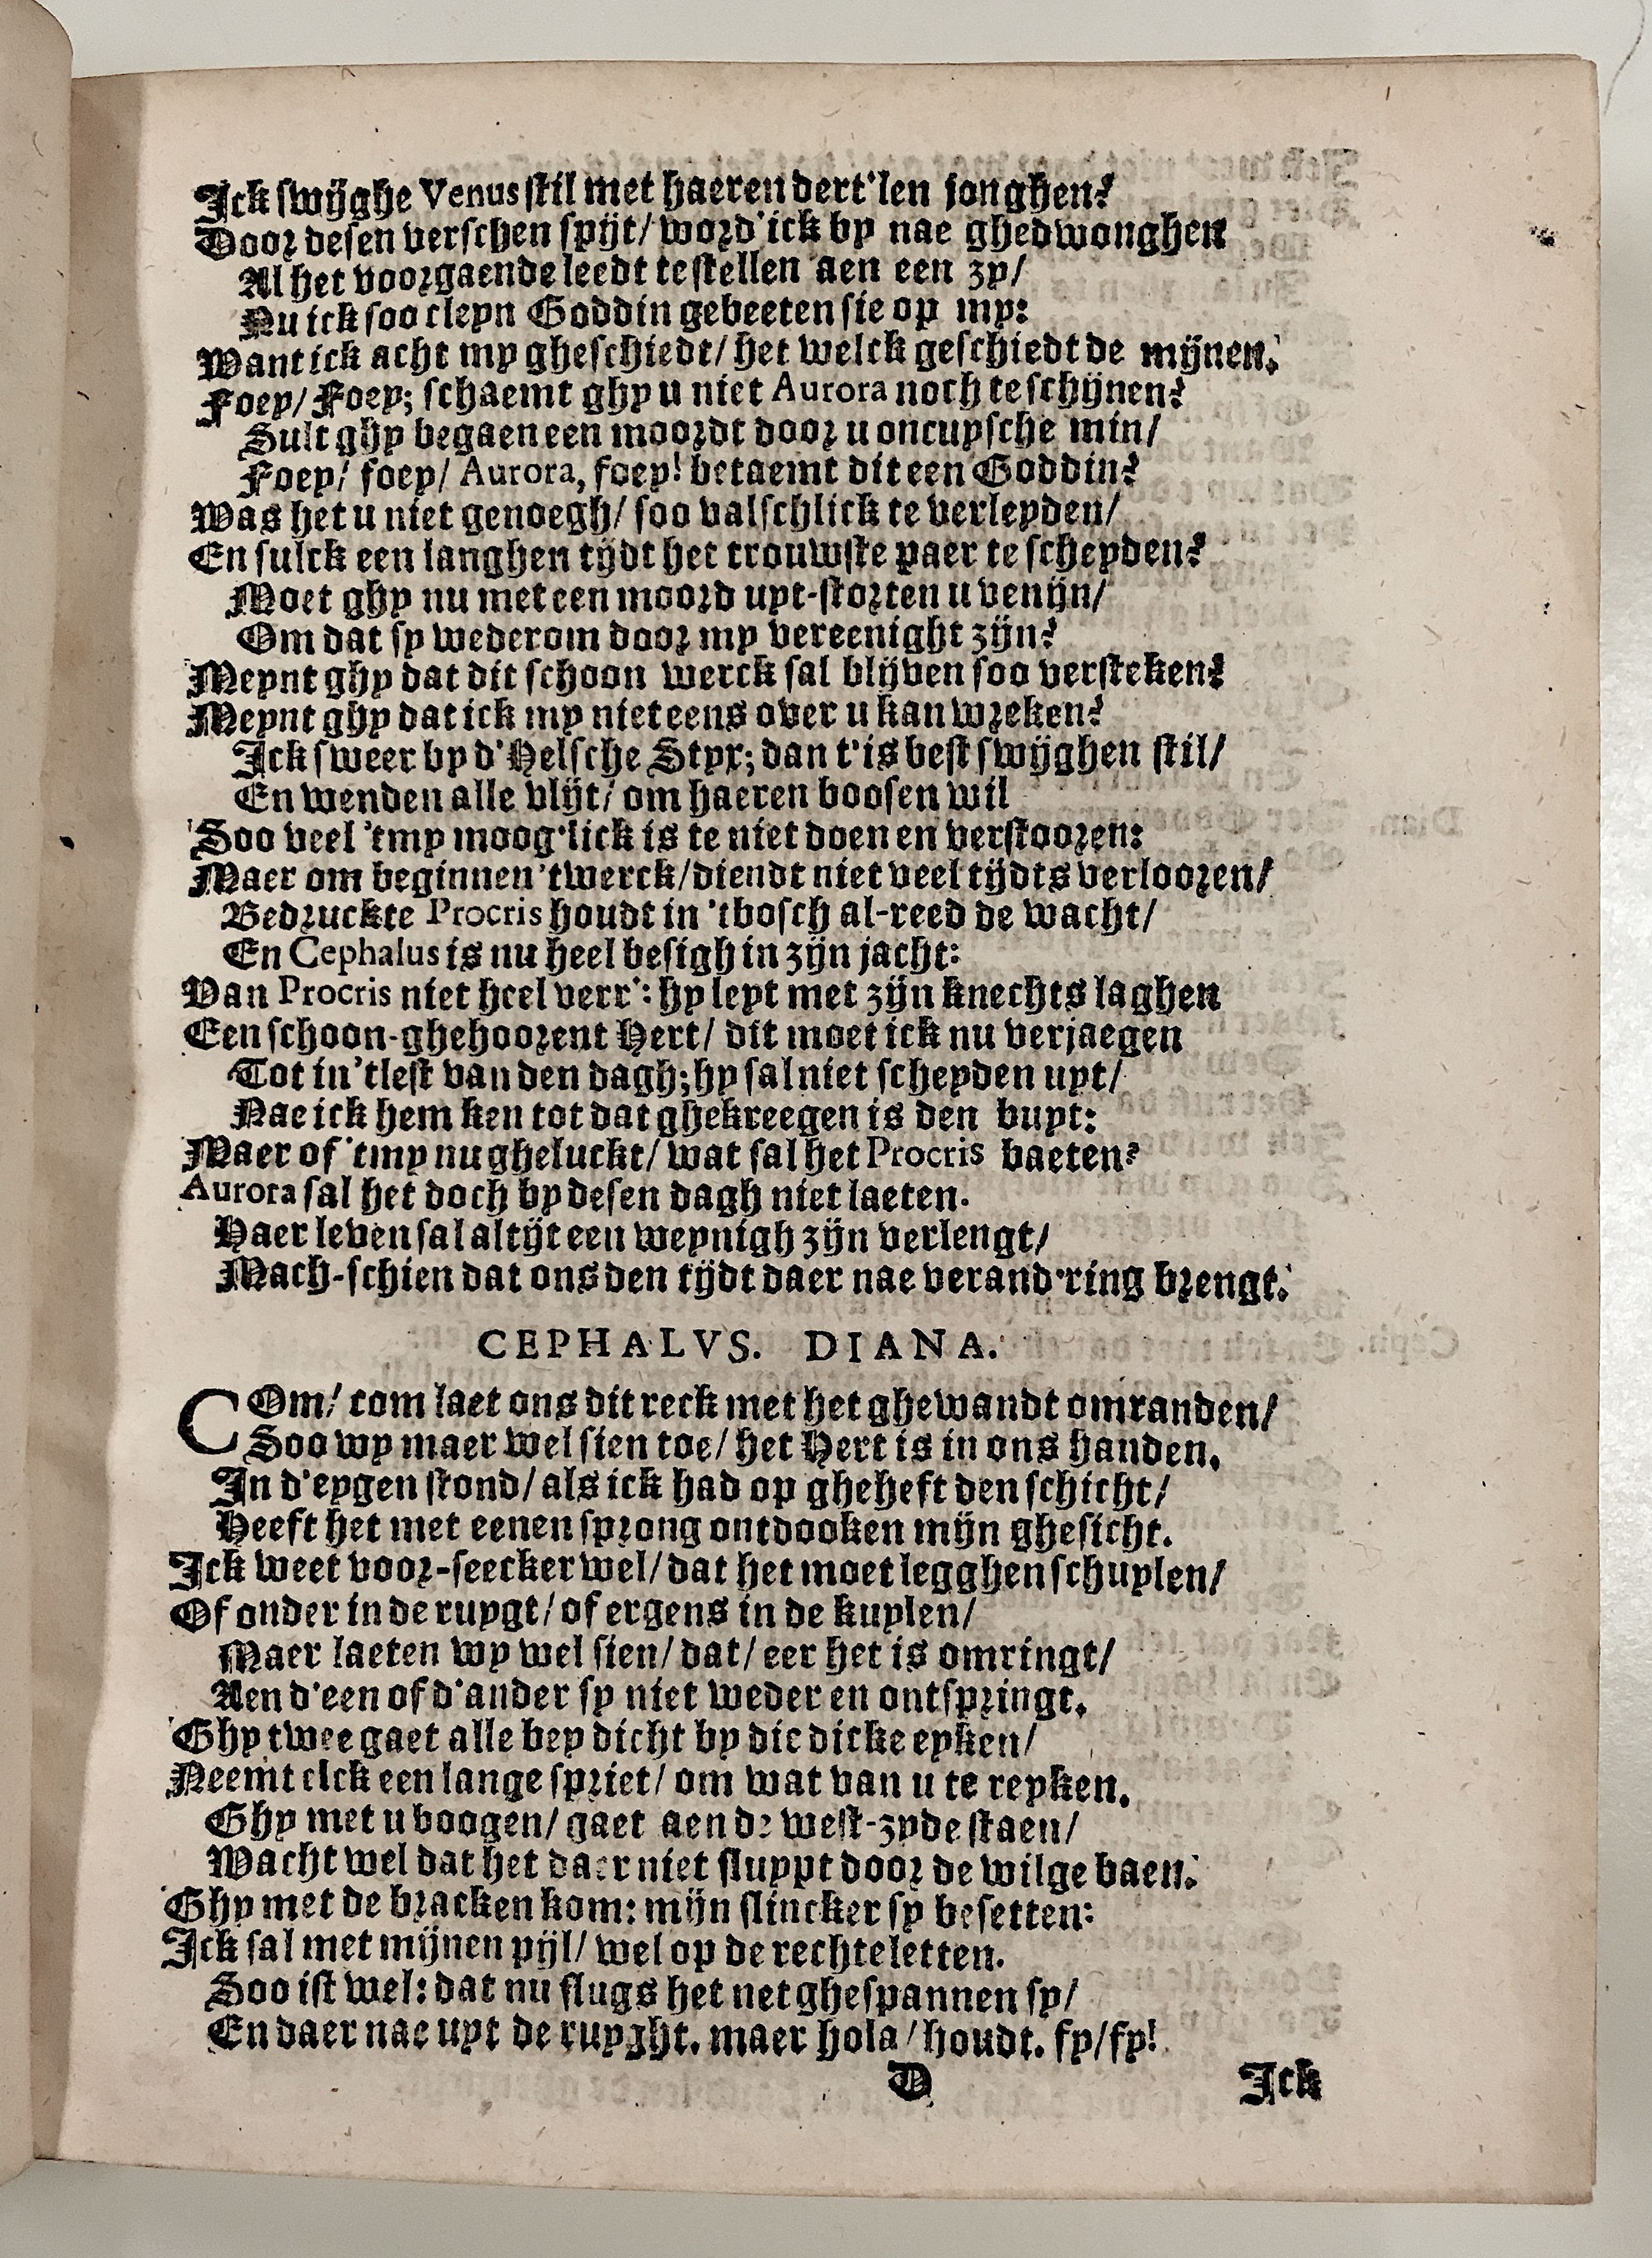 Ick swijghe Venus stil met haeren dert'len jonghen?
Door desen verschen spijt/ word' ick by nae ghedwonghen
Al het voorgaende leedt te stellen aen een zy/
Nu ick soo cleyn Goddin gebeeten sie op my:
Want ick acht my gheschiedt/ het welck geschiedt de mijnen.
Foey/ Foey; schaemt ghy u niet Aurora noch te schijnen?
Sult ghy begaen een moordt door u oncuysche min/
Foey/ foey/ Aurora, foey! betaemt dit een Goddin?
Was het u niet genoegh/ soo valschlick te verleyden/
En sulck een langhen tijdt het trouwste paer te scheyden?
Moet ghy nu met een moord uyt-storten u venijn/
Om dat sy wederom door my vereenight zijn?
Meynt ghy dat dit schoon werck sal blijven soo versteken?
Meynt ghy dat ick my niet eens over u kan wreken?
Ick sweer by d'Helsche Styx; dan t'is best swijghen stil/
En wenden alle vlijt/ om haeren boosen wil
Soo veel 'tmy moog'lick is te niet doen en verstooren:
Maer om beginnen 'twerck/ diendt niet veel tijdts verlooren/
Bedruckte Procris houdt in 'tbosch al-reed de wacht/
En Cephalus is nu heel besigh in zijn jacht:
Van Procris niet heel verr': hy leyt met zijn knechts laghen
Een schoon-ghehoorent Hert/ dit moet ick nu verjaegen
Tot in 'tlest van den dagh; hy sal niet scheyden uyt/
Nae ick hem ken tot dat ghekreegen is den buyt:
Maer of 'tmy nu gheluckt/ wat sal het Procris baeten?
Aurora sal het doch by desen dagh niet laeten.
Haer leven sal altijt een weynigh zijn verlengt/
Mach-schien dat ons den tijdt daer nae verand'ring brengt.
CEPHALVS. DIANA.
COm/ com laet ons dit reck met het ghewandt omranden/
Soo wy maer wel sien toe/ het Hert is in ons handen.
In d'eygen stond/ als ick had op gheheft den schicht/
Heeft het met eenen sprong ontdooken mijn ghesicht.
Ick weet voor-seecker wel/ dat het moet legghen schuylen/
Of onder in de ruygt/ of ergens in de kuylen/
Maer laeten wy wel sien/ dat/ eer het is omringt/
Aen d'een of d'ander sy niet weder en ontspringt.
Ghy twee gaet alle bey dicht by die dicke eyken/
Neemt elck een lange spriet/ om wat van u te reyken.
Ghy met u boogen/ gaet aen de west-zyde staen/
Wacht wel dat het daer niet sluypt door de wilge baen.
Ghy met de bracken kom: mijn slincker sy besetten:
Ick sal met mijnen pijl/ wel op de rechte letten.
Soo ist wel: dat nu flugs het net ghespannen sy/
En daer nae uyt de ruyght. maer hola/ houdt. fy/ fy!
D
Ick